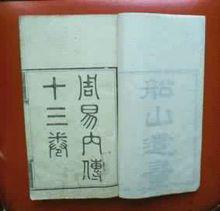 船山遺書
周易內傳
十三卷